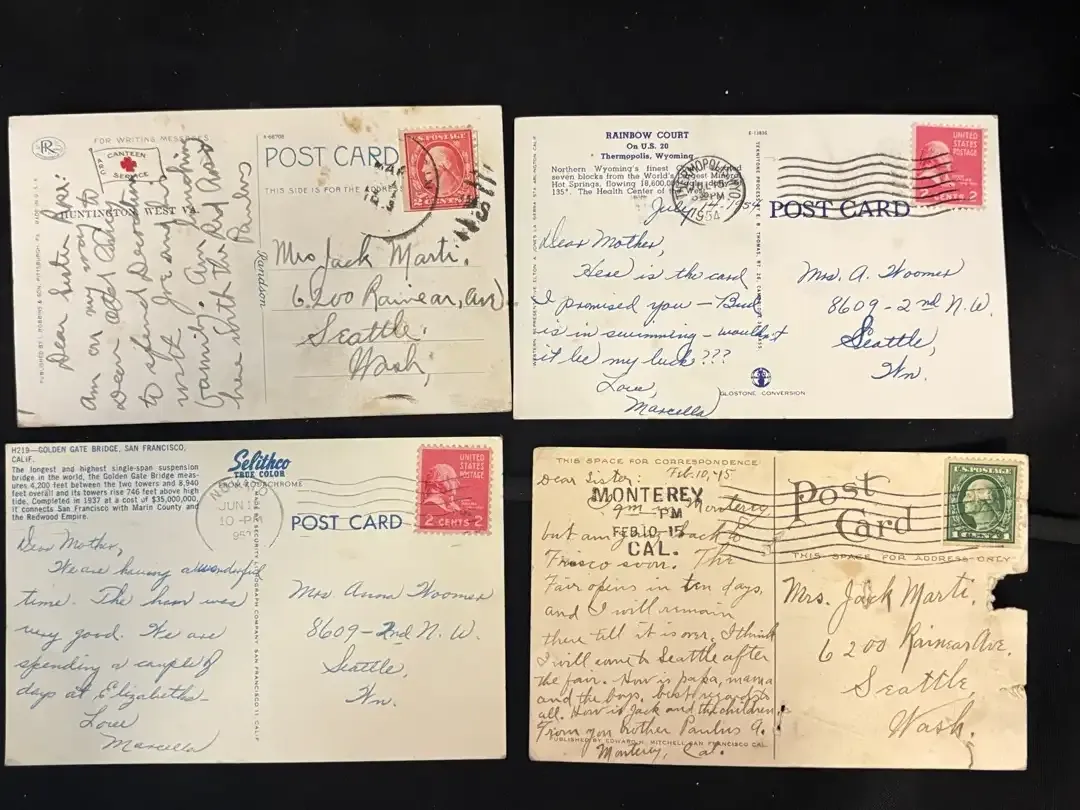 FOR WRITING MESSAGES
A-66708
POST CARD
THIS SIDE IS FOR THE ADDRESS
U.S. POSTAGE
2 CENTS 2
PR
ARC
CANTEEN
SERVICE
HUNTINGTON, WEST VA.
Dear Sister Rose.
Am on my way to
Dear old
to spend Decoration
with Joe and his
family. Am lunching
here with the Red Cross
Paulus
Mrs Jack Marti.
6200 Rainear, Av
Seattle.
Wash,
RAINBOW COURT
On U.S. 20
Thermopolis, Wyoming
Northern Wyoming's finest
seven blocks from the World's Largest Mineral
Hot Springs, flowing 18,600,
135°. The Health Center of West
THERMOPOLIS
WYO
JUL 15
PM
1954
UNITED
STATES
POSTAGE
CENTS 2
POST CARD
July 14, 1954
Dear Mother,
Here is the card
I promised you – Bud
is in swimming – wouldn't
it be my luck???
Love,
Marcella
Mrs. A. Woomer
8609 - 2nd N.W.
Seattle,
Wn.
GLOSTONE CONVERSION
H219—GOLDEN GATE BRIDGE, SAN FRANCISCO,
CALIF.
The longest and highest single-span suspension
bridge in the world, the Golden Gate Bridge meas-
ures 4,200 feet between the two towers and 8,940
feet overall and its towers rise 746 feet above high
tide. Completed in 1937 at a cost of $35,000,000,
it connects San Francisco with Marin County and
the Redwood Empire.
Selithco
TRUE COLOR
FROM KODACHROME
JUN
10 - PM
POST CARD
UNITED
STATES
POSTAGE
2 CENTS 2
Dear Mother,
We are having a wonderful
time. The ham was
very good. We are
spending a couple of
days at Elizabeths –
Love
Marcella
Mrs Anna Woomer
8609 - 2nd N.W.
Seattle,
Wn.
THIS SPACE FOR CORRESPONDENCE
Feb. 10, 15
Dear Sister:
MONTEREY
PM
FEB 10 15
CAL.
Am in Monterey
but am back to
Frisco soon. The
Fair opens in ten days,
and I will remain
there till it is over. I think
I will come to Seattle after
the fair. How is papa, mama
and the boys. best regards to
all. How is Jack and the children.
From your brother Paulus A.
PUBLISHED BY EDWARD H. MITCHELL SAN FRANCISCO CAL.
Monterey, Cal.
Post
Card
THIS SPACE FOR ADDRESS ONLY
U.S. POSTAGE
1 CENT 1
Mrs. Jack Marti.
6200 Rainear Ave.
Seattle,
Wash.